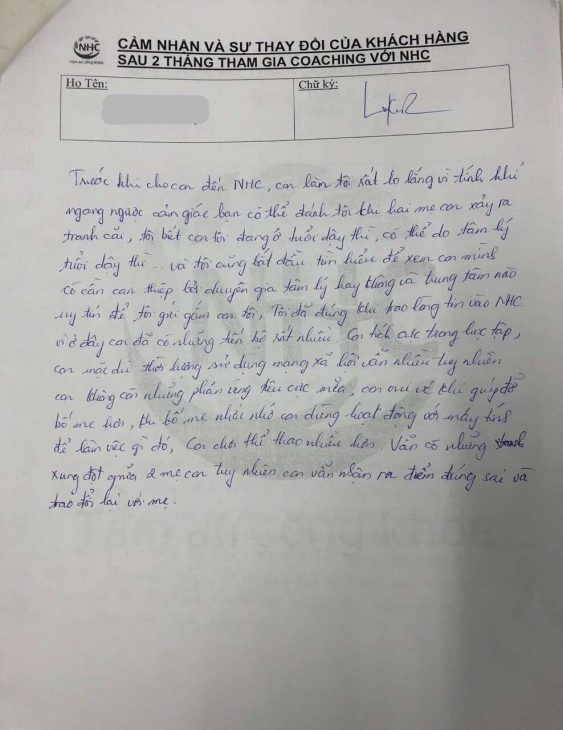 NHC
CẢM NHẬN VÀ SỰ THAY ĐỔI CỦA KHÁCH HÀNG
SAU 2 THÁNG THAM GIA COACHING VỚI NHC
Họ Tên:
Chữ ký:
Trước khi cho con đến NHC, con làm tôi rất lo lắng vì tính khí
ngang ngược cảm giác bạn có thể đánh tôi khi hai mẹ con xảy ra
tranh cãi, tôi biết con tôi đang ở tuổi dậy thì, có thể do tâm lý
tuổi dậy thì ... và tôi cũng bắt đầu tìm hiểu để xem con mình
có cần can thiệp bởi chuyên gia tâm lý hay không và trung tâm nào
uy tín để tôi gửi gắm con tôi, Tôi đã đúng khi trao lòng tin vào NHC
vì ở đây con đã có những tiến bộ rất nhiều. Con tích cực trong học tập,
con mặc dù thời lượng sử dụng mạng xã hội vẫn nhiều tuy nhiên
con không còn những phản ứng tiêu cực nữa, con vui vẻ khi giúp đỡ
bố mẹ hơn, khi bố mẹ nhắc nhở con dừng hoạt động với máy tính
để làm việc gì đó, Con chơi thể thao nhiều hơn. Vẫn có những
xung đột giữa 2 mẹ con tuy nhiên con vẫn nhận ra điểm đúng sai và
trao đổi lại với mẹ.